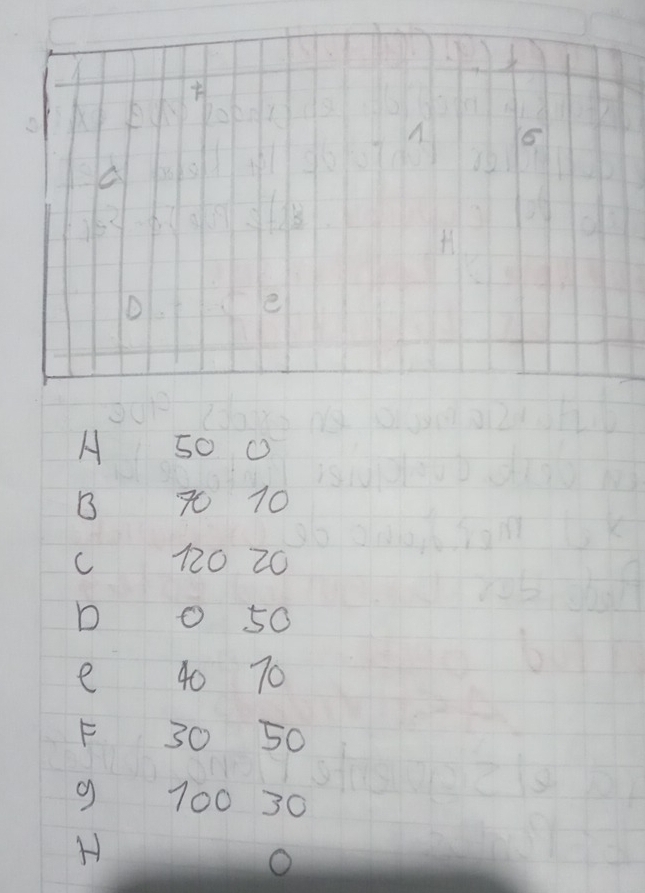 F
1 G
C
H
D e
A 50 0
B 70 10
C 120 20
D 0 50
e 40 10
F 30 50
g 100 30
H 0